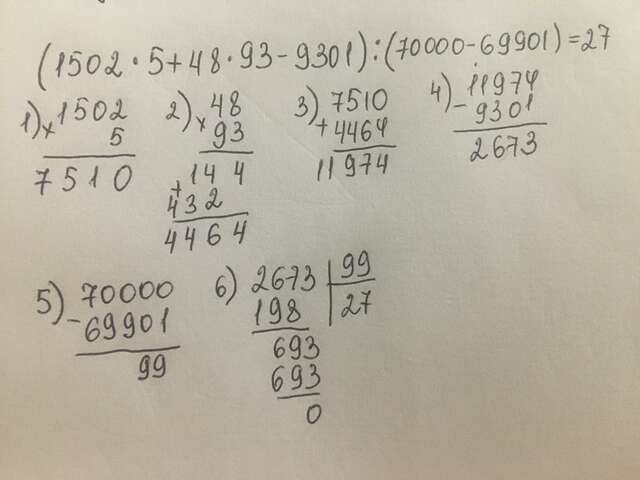 (1502·5+48·93-9301):(70000-69901)=27
1) × 1502
5
7510
2) × 48
93
+ 144
432
4464
3) 7510
+ 4464
11974
4) 11974
- 9301
2673
5) 70000
- 69901
99
6) 2673 | 99
198 | 27
693
693
0